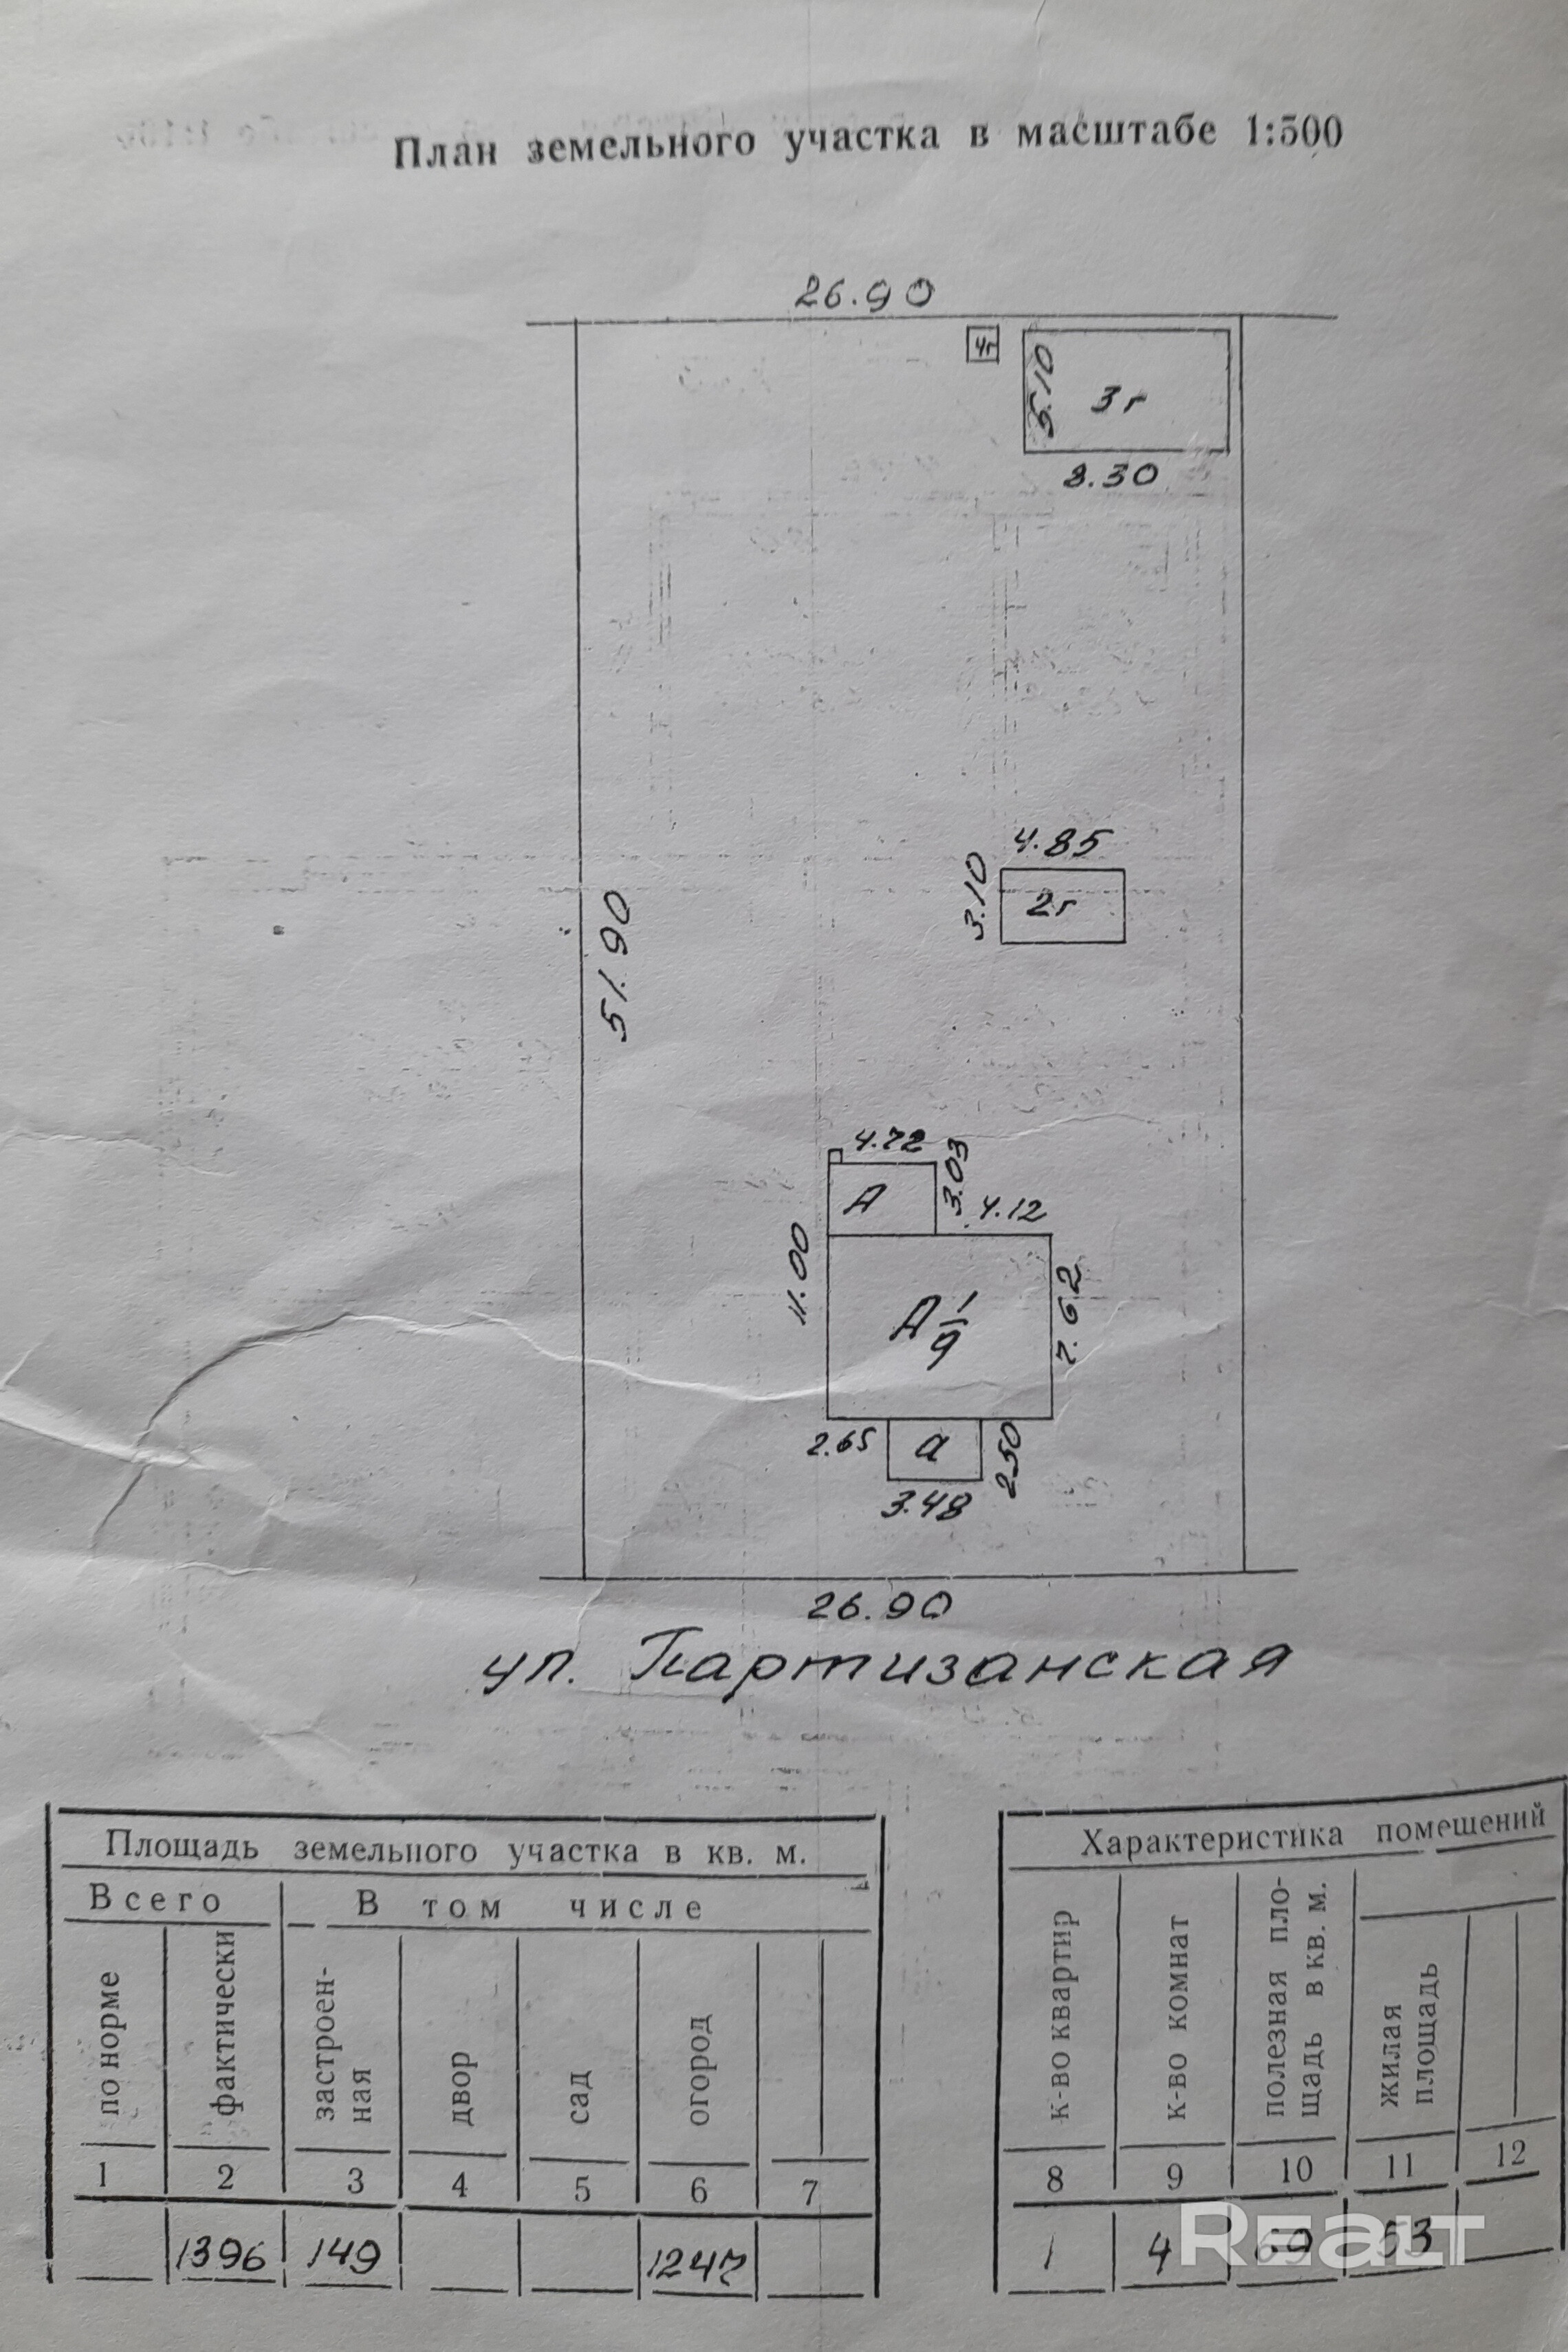 План земельного участка в масштабе 1:500
26.90
4г
5.10
3г
8.30
4.85
3.10
2г
51.90
4.72
3.03
А
4.12
11.00
А 1/9
7.62
2.65
а
2.50
3.48
26.90
ул. Партизанская
Площадь земельного участка в кв. м.
Всего
В том числе
по норме
фактически
застроен-
ная
двор
сад
огород
1 2 3 4 5 6 7
1396 149 1247
Характеристика помещений
к-во квартир
к-во комнат
полезная пло-
щадь в кв. м.
жилая
площадь
8 9 10 11 12
1 4 69 53
REALT